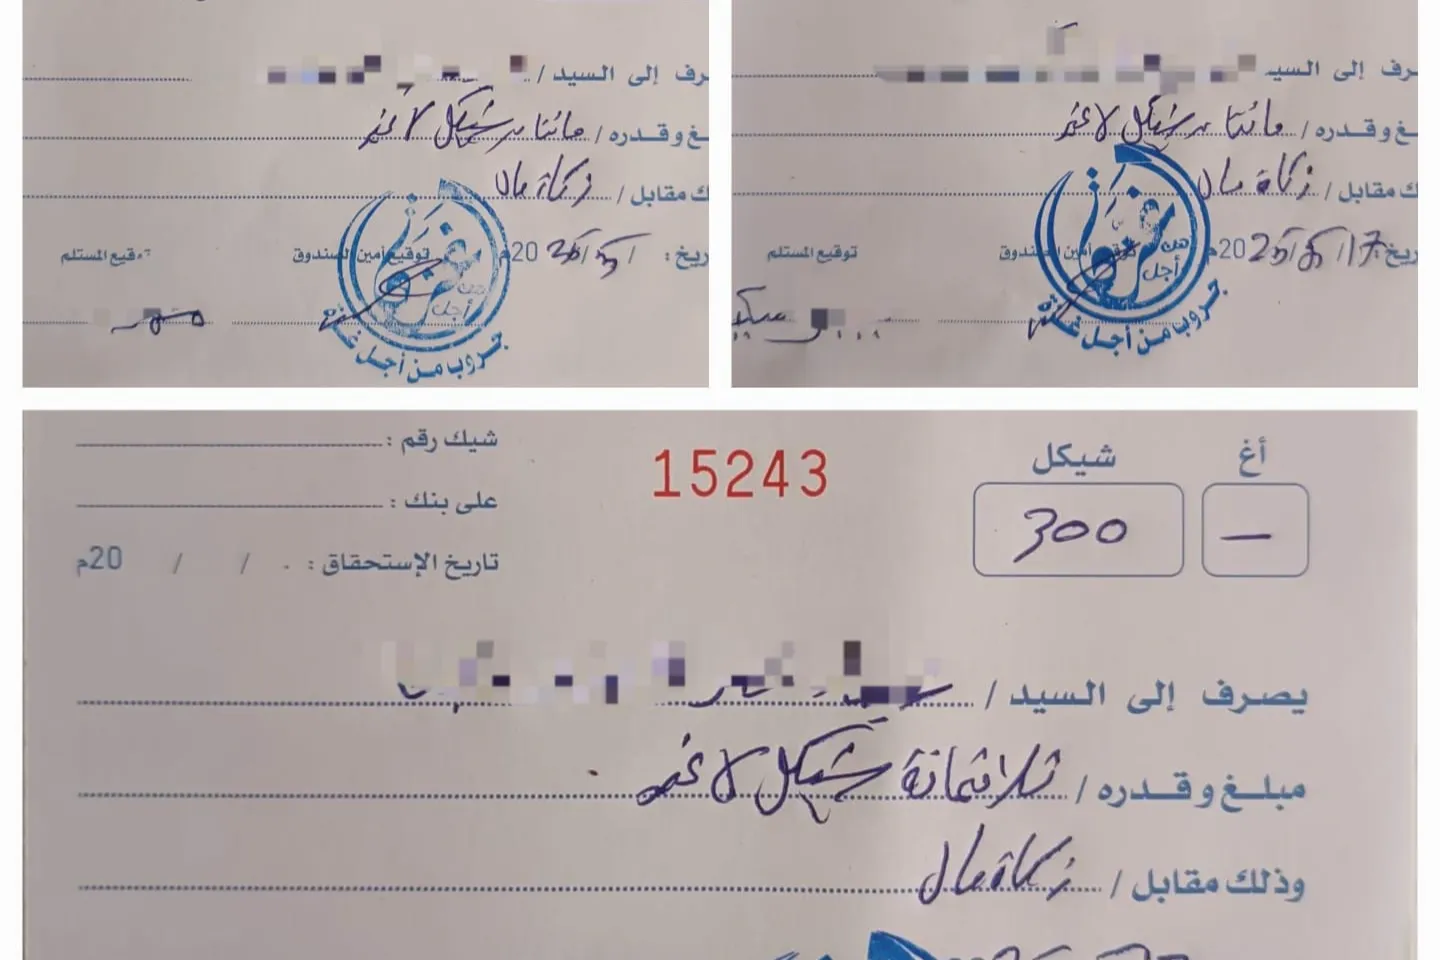 رف إلى السيد /
غ وقدره / مائتا شيكل لا غير
ك مقابل / زكاة مال
ريخ : / 5 / 2025م
توقيع أمين الصندوق
توقيع المستلم
من أجل غزة
جروب من أجل غزة
رف إلى السيـ
ـغ وقدره / مائتا شيكل لا غير
ك مقابل / زكاة مال
ريخ 17 / 5 / 2025م
توقيع أمين الصندوق
توقيع المستلم
من أجل غزة
جروب من أجل غزة
أغ شيكل
— 300
15243
شيك رقم :
على بنك :
تاريخ الإستحقاق : / / 20م
يصرف إلى السيد /
مبلغ وقدره / ثلاثمائة شيكل لا غير
وذلك مقابل / زكاة مال